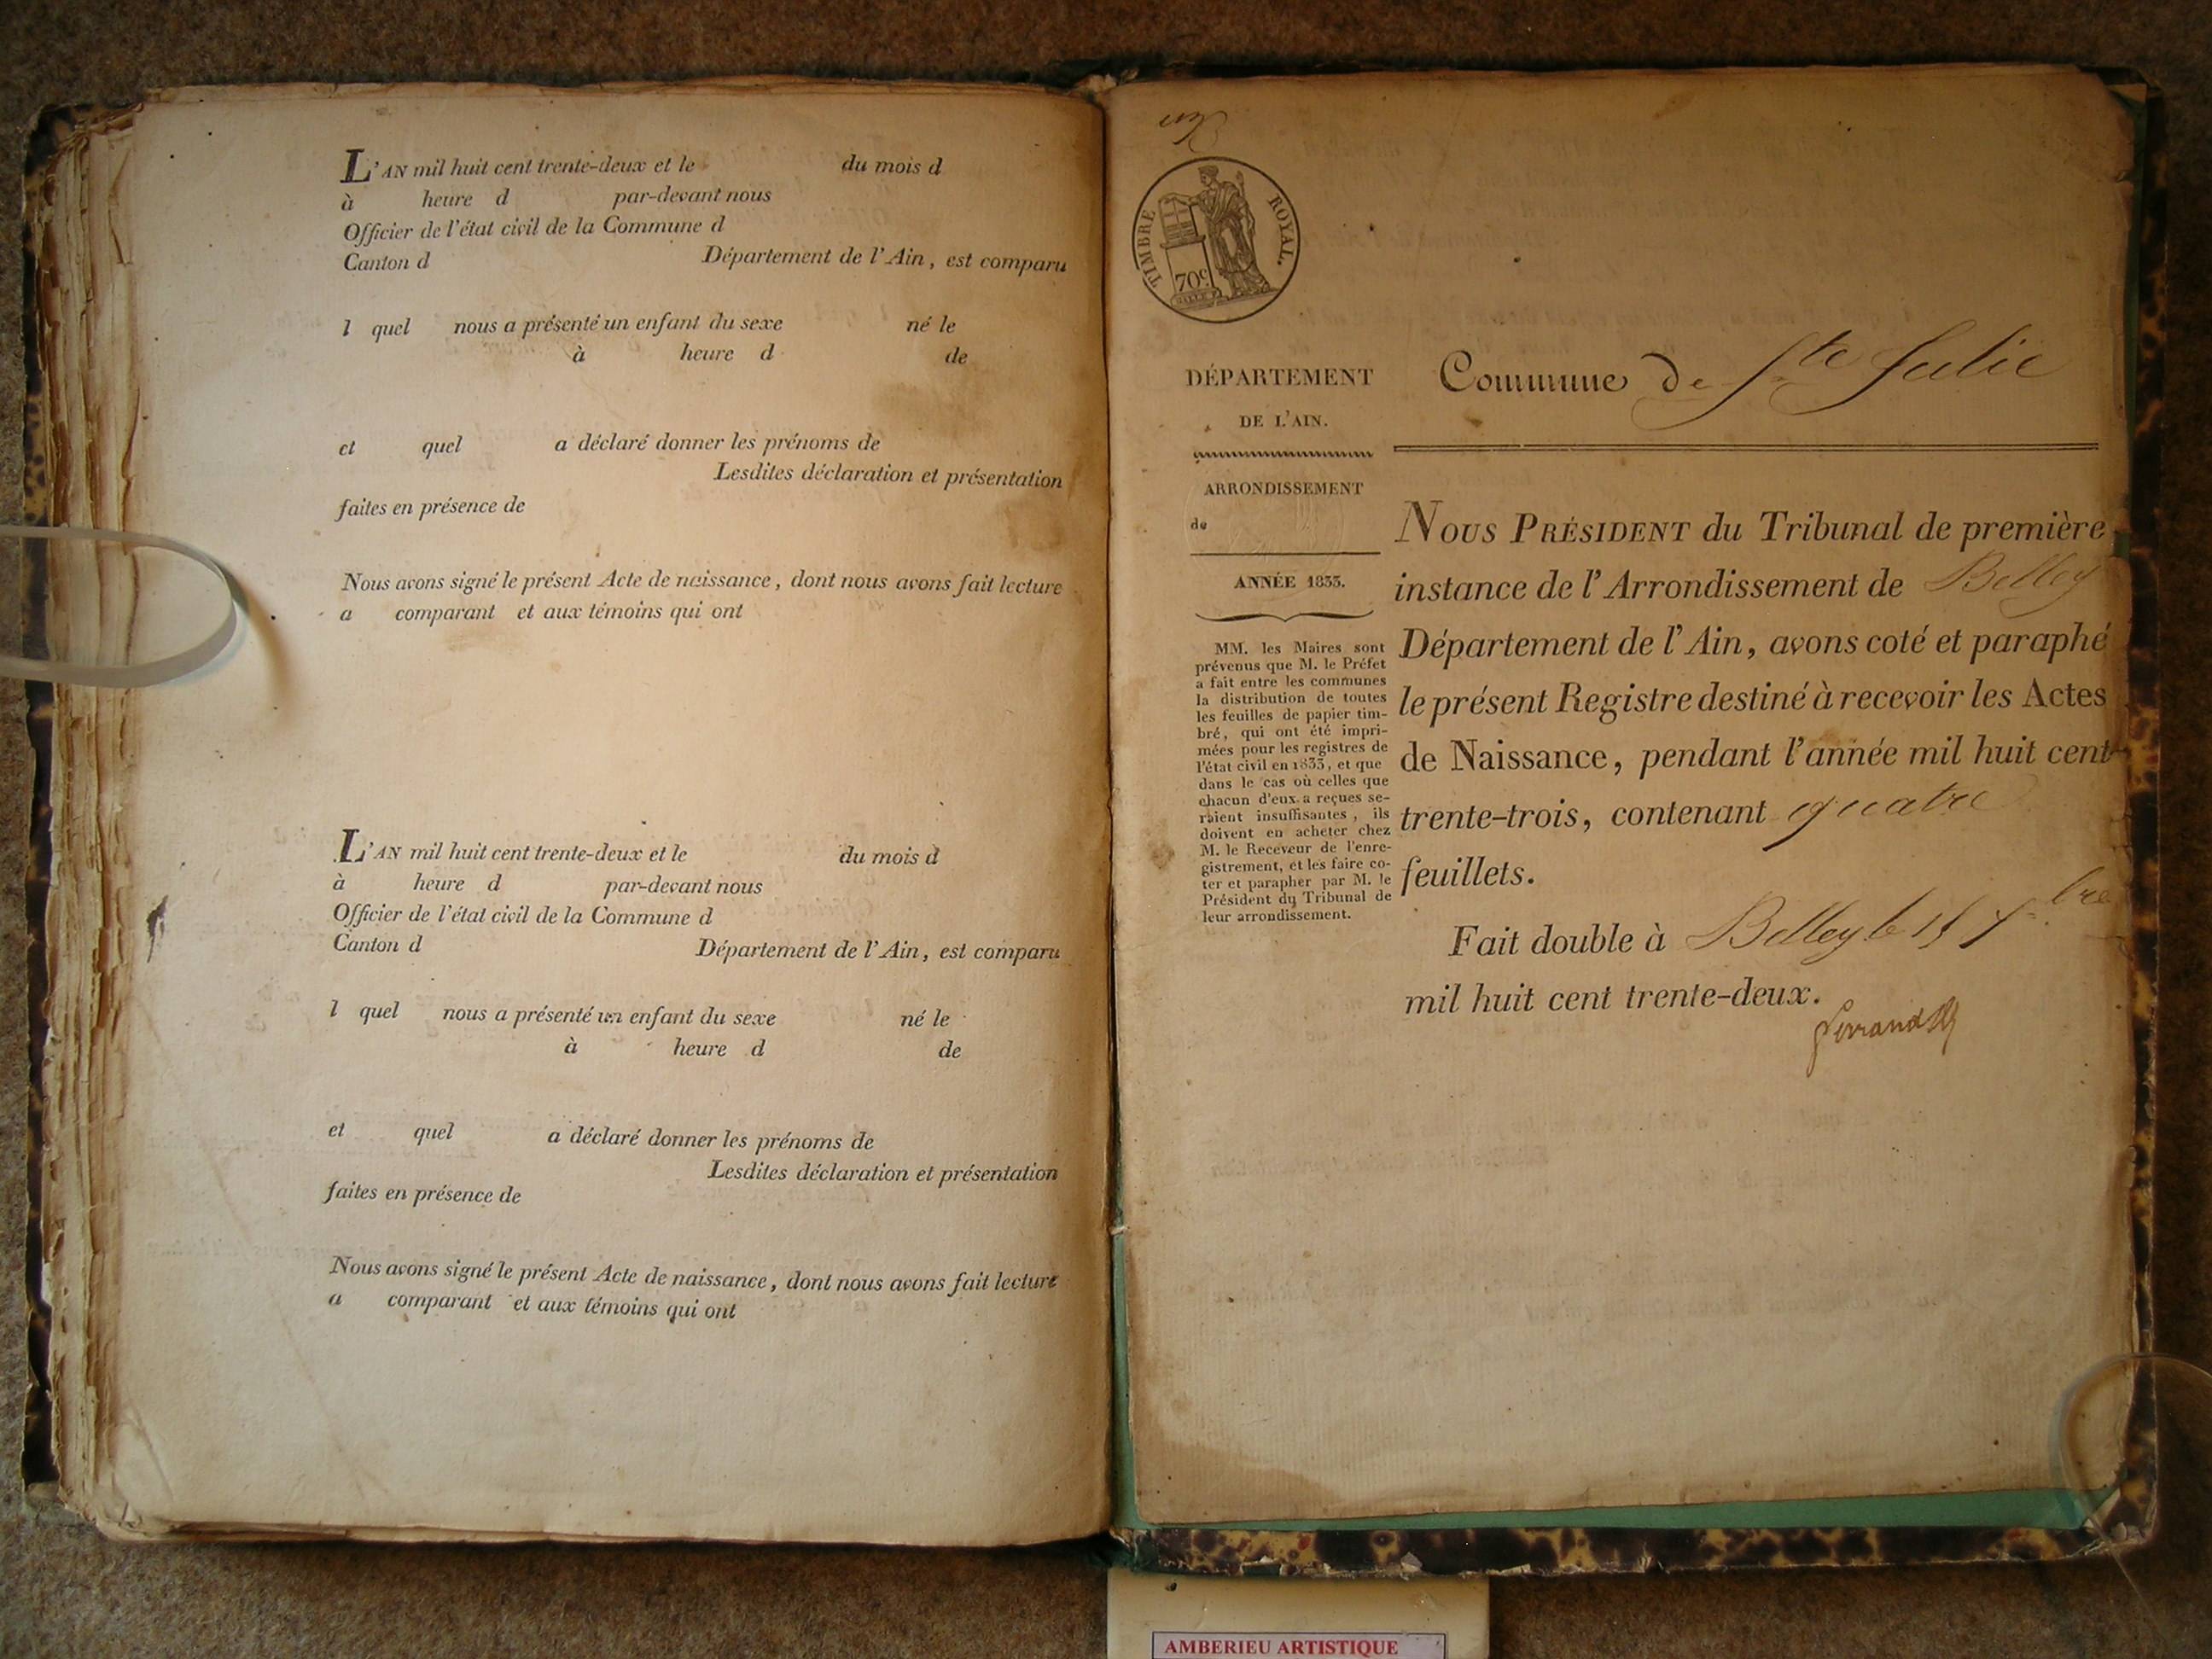 L'AN mil huit cent trente-deux et le du mois d
à heure d par-devant nous
Officier de l'état civil de la Commune d
Canton d Département de l'Ain, est comparu
l quel nous a présenté un enfant du sexe né le
à heure d de
et quel a déclaré donner les prénoms de
Lesdites déclaration et présentation
faites en présence de
Nous avons signé le présent Acte de naissance, dont nous avons fait lecture
a comparant et aux témoins qui ont
L'AN mil huit cent trente-deux et le du mois d
à heure d par-devant nous
Officier de l'état civil de la Commune d
Canton d Département de l'Ain, est comparu
l quel nous a présenté un enfant du sexe né le
à heure d de
et quel a déclaré donner les prénoms de
Lesdites déclaration et présentation
faites en présence de
Nous avons signé le présent Acte de naissance, dont nous avons fait lecture
a comparant et aux témoins qui ont
TIMBRE ROYAL.
70c
DÉPARTEMENT
DE L'AIN.
ARRONDISSEMENT
de
ANNÉE 1833.
MM. les Maires sont
prévenus que M. le Préfet
a fait entre les communes
la distribution de toutes
les feuilles de papier tim-
bré, qui ont été impri-
mées pour les registres de
l'état civil en 1833, et que
dans le cas où celles que
chacun d'eux a reçues se-
raient insuffisantes, ils
doivent en acheter chez
M. le Receveur de l'enre-
gistrement, et les faire co-
ter et parapher par M. le
Président du Tribunal de
leur arrondissement.
Commune de Ste Julie
NOUS PRÉSIDENT du Tribunal de première
instance de l'Arrondissement de Belley
Département de l'Ain, avons coté et paraphé
le présent Registre destiné à recevoir les Actes
de Naissance, pendant l'année mil huit cent
trente-trois, contenant quatre
feuillets.
Fait double à Belley le
mil huit cent trente-deux.
AMBERIEU ARTISTIQUE